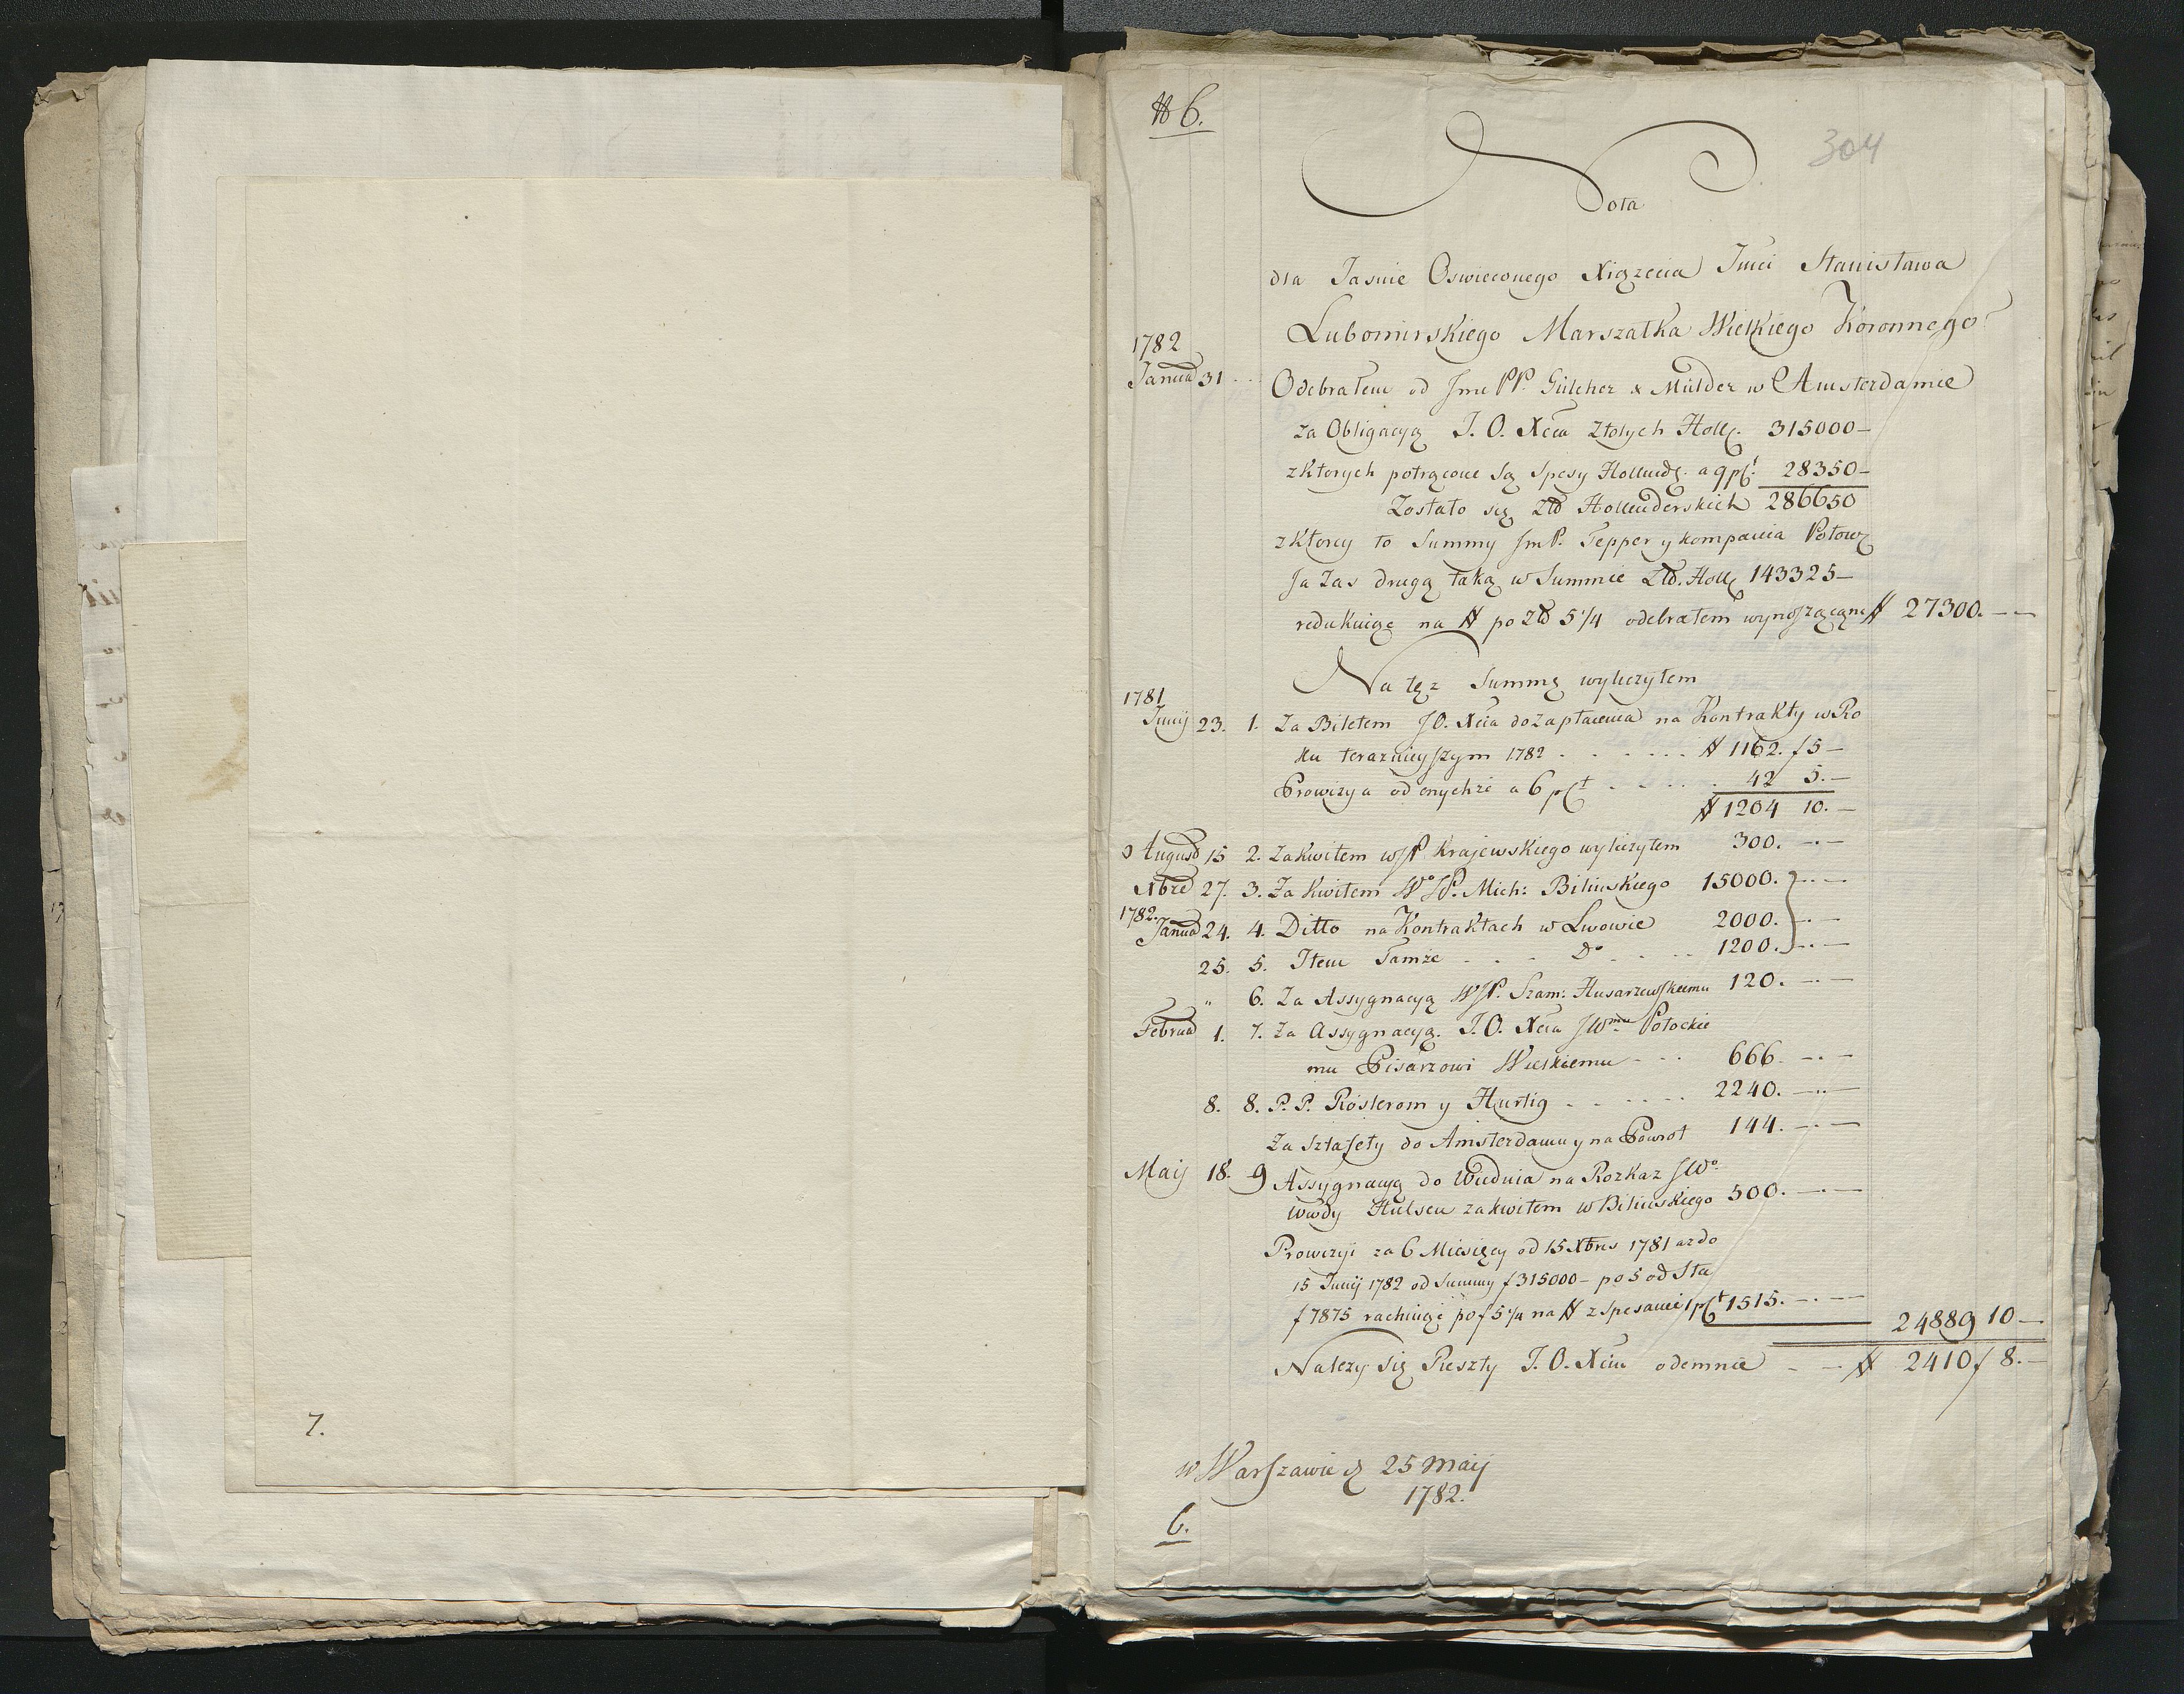 7.
# 6.
304
Nota
dla Jasnie Oswieconego Xiązęcia Jmci Stanisława
Lubomirskiego Marszałka Wielkiego Koronnego
1782
Januar 31 Odebrałem od Jmc PP. Gülcher & Mülder w Amsterdamie
za Obligacyą J. O. Xcia Złotych Holl. 315000—
z ktorych potrącone są Spesy Hollend. a 9 pCt. 28350—
Zostało się Zło Hollenderskich 286650
z ktorey to Summy Jm P. Tepper y kompania Połowę
Ja zas drugą taką w Summie Zło. Holl 143325—
redukuiąc na # po Zło 5 1/4 odebrałem wynoszącą # 27300. — —
Na tęż Summę wyliczyłem
1781
Junij 23. 1. Za Biletem J O. Xcia do zapłacenia na Kontrakty w Ro
ku teraznieyszym 1782 . . . . . . # 1162. f 5 —
Prowizya od onychże a 6 pCt . . . . . 42 5. —
# 1204 10. —
August 15 2. Za kwitem WJP Krajewskiego wyliczyłem 300. — . —
Xbre 27. 3. Za kwitem W° JP. Mich: Bilinskiego 15000. — . —
1782.
Januar 24. 4. Ditto na Kontraktach w Lwowie 2000. — . —
25. 5. Item Tamże . . . D° . . . . 1200. — . —
" 6. Za Assygnacyą WJP. Szam: Husarzewskiemu 120. — . —
Februar 1. 7. Za Assygnacyą. J. O. Xcia JWmu Potockie
mu Pisarzowi Wielkiemu . . . 666. — . —
8. 8. P. P. Rösterom y Hurtig . . . . . . 2240. — . —
Za sztafety do Amsterdamu y na Powrot 144. — . —
Maij 18. 9 Assygnacyą do Wiednia na Rozkaz JW°
Wwdy Hulsen za kwitem W Bilinskiego 500. — . —
Prowizyi za 6 Miesięcy od 15 Xbris 1781 az do
15 Junij 1782 od Summy f 315000 — po 5 od Sta
f 7875 rachuiąc po f 5 1/4 na # z spesami 1 pCt 1515. — . —
24889 10 —
Nalezy się Reszty J. O. Xciu odemnie — — # 2410 f 8. —
w Warszawie d 25 Maij
1782.
6.